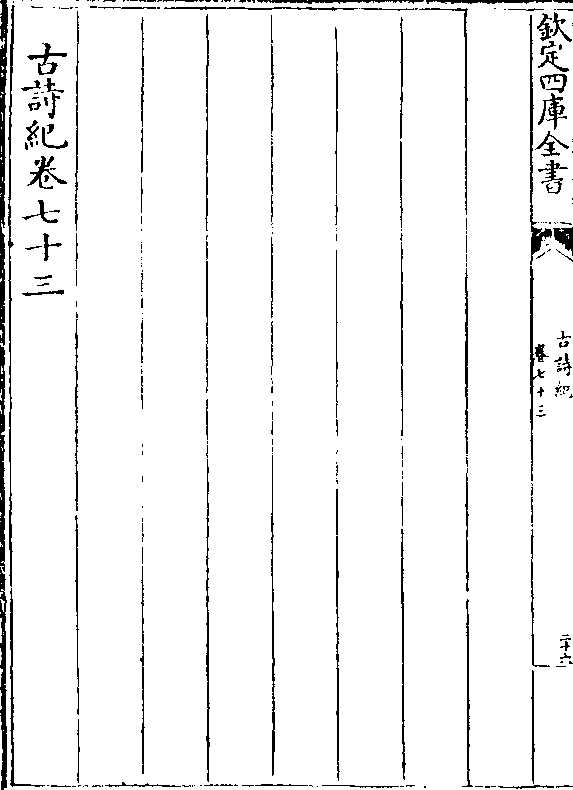 欽定四庫全書
古詩紀
卷七十三
二十六
古詩紀卷七十三